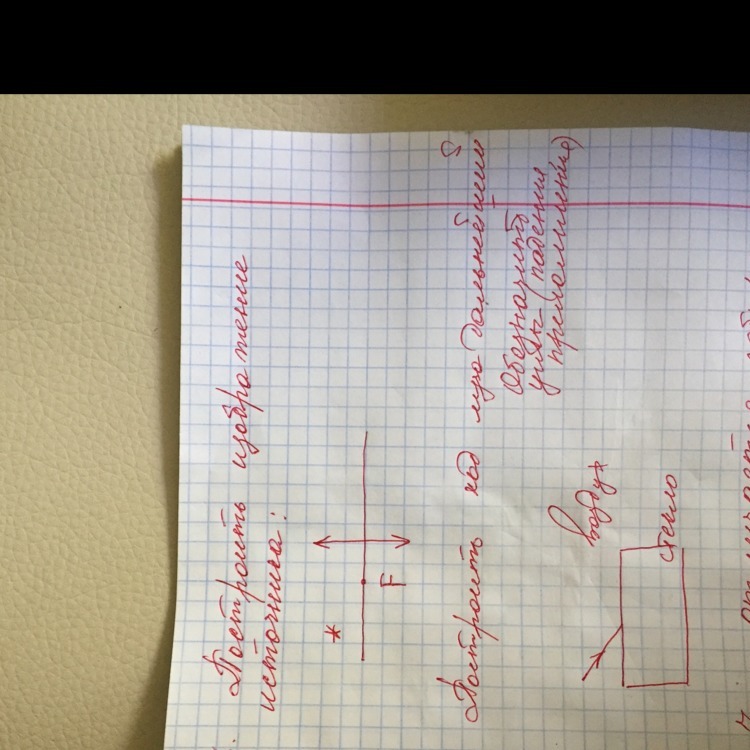 Построить изображение
источника:
F
Построить ход луча дальнейший
Обозначить
углы (падения
преломления)
воздух
стекло